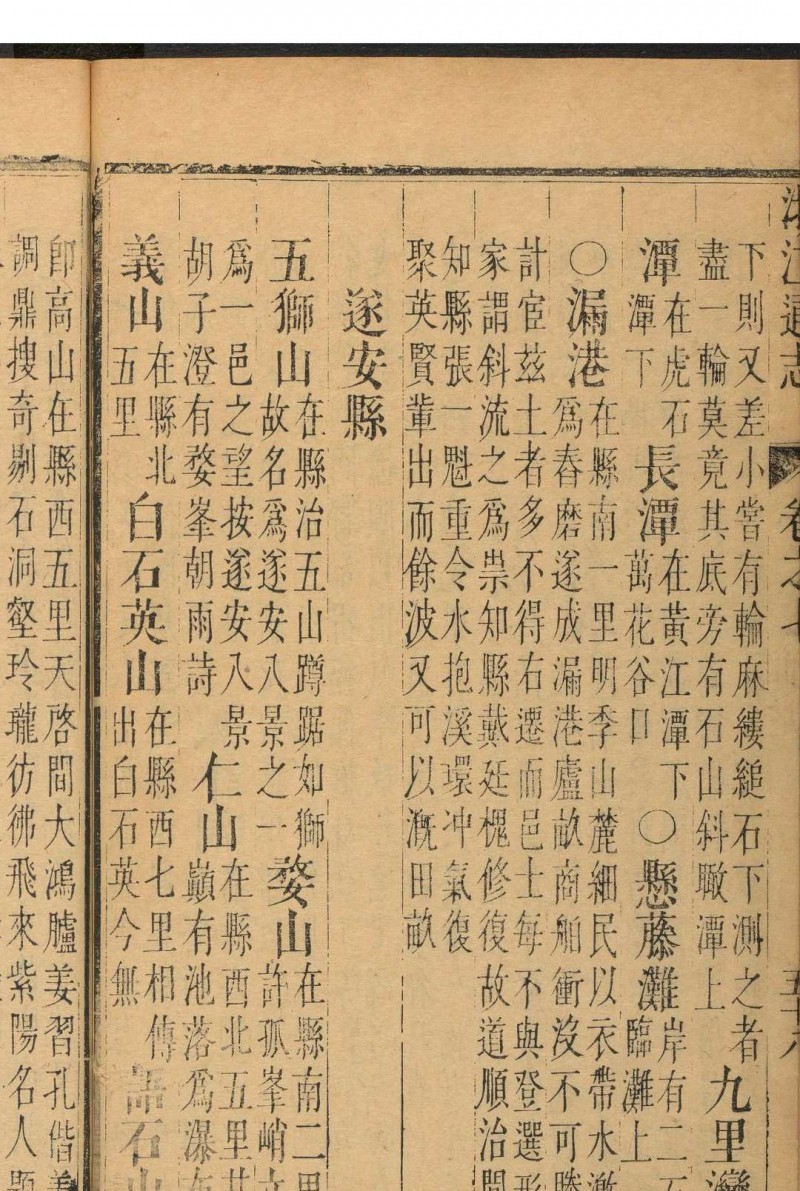 浙江通志 卷之七 五十六
下則又差小嘗有輪麻縷縋石下測之者
盡一輪莫竟其底旁有石山斜瞰潭上
九里灣
潭在虎石
潭下
長潭在黃江潭下
萬花谷口
○懸藤灘岸有二石
臨灘上
○漏港在縣南一里明季山麓細民以衣帶水激
爲舂磨遂成漏港廬畝商舶衝沒不可勝
計宦茲土者多不得右遷而邑士每不與登選形
家謂斜流之爲祟知縣戴廷槐修復故道順治間
知縣張一魁重令水抱溪環冲氣復
聚英賢輩出而餘波又可以溉田畝
遂安縣
五獅山在縣治五山蹲踞如獅
故名爲遂安八景之一
婺山在縣南二里
許孤峯峭立
爲一邑之望按遂安八景
胡子澄有婺峯朝雨詩
仁山在縣西北五里其
巔有池落爲瀑布
義山在縣北
五里
白石英山在縣西七里相傳
出白石英今無
詰石山
卽高山在縣西五里天啓間大鴻臚姜習孔偕姜
調鼎搜奇剔石洞壑玲瓏彷彿飛來紫陽名人題